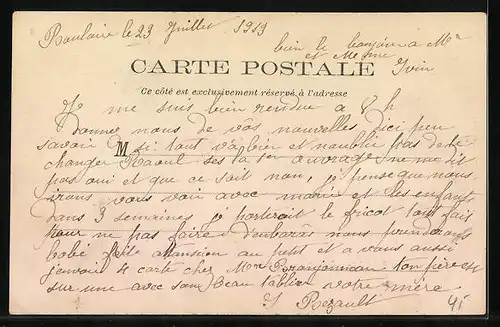 le 23 Juillet 1913
bien le bonjour a Mr
et Mme
CARTE POSTALE
Ce côté est exclusivement réservé à l'adresse
Je me suis bien rendue a 8 h
Donne nous de vos nouvelles dici peu
savoir M si tout va bien et noublie pas de te
changer Raoul ses ta 1er ouvrage ne me dit
pas oui et que ce sait non, je pense que nous
irons vous voir avec marie et les enfants
dans 3 semaines je porterait le fricot tout fait
pour ne pas faire dembaras nous prenderons
bobé faite attansion au petit et a vous aussi
janvoie 4 carte chez Mme ton père est
sur une avec son beau tablier votre mère
41